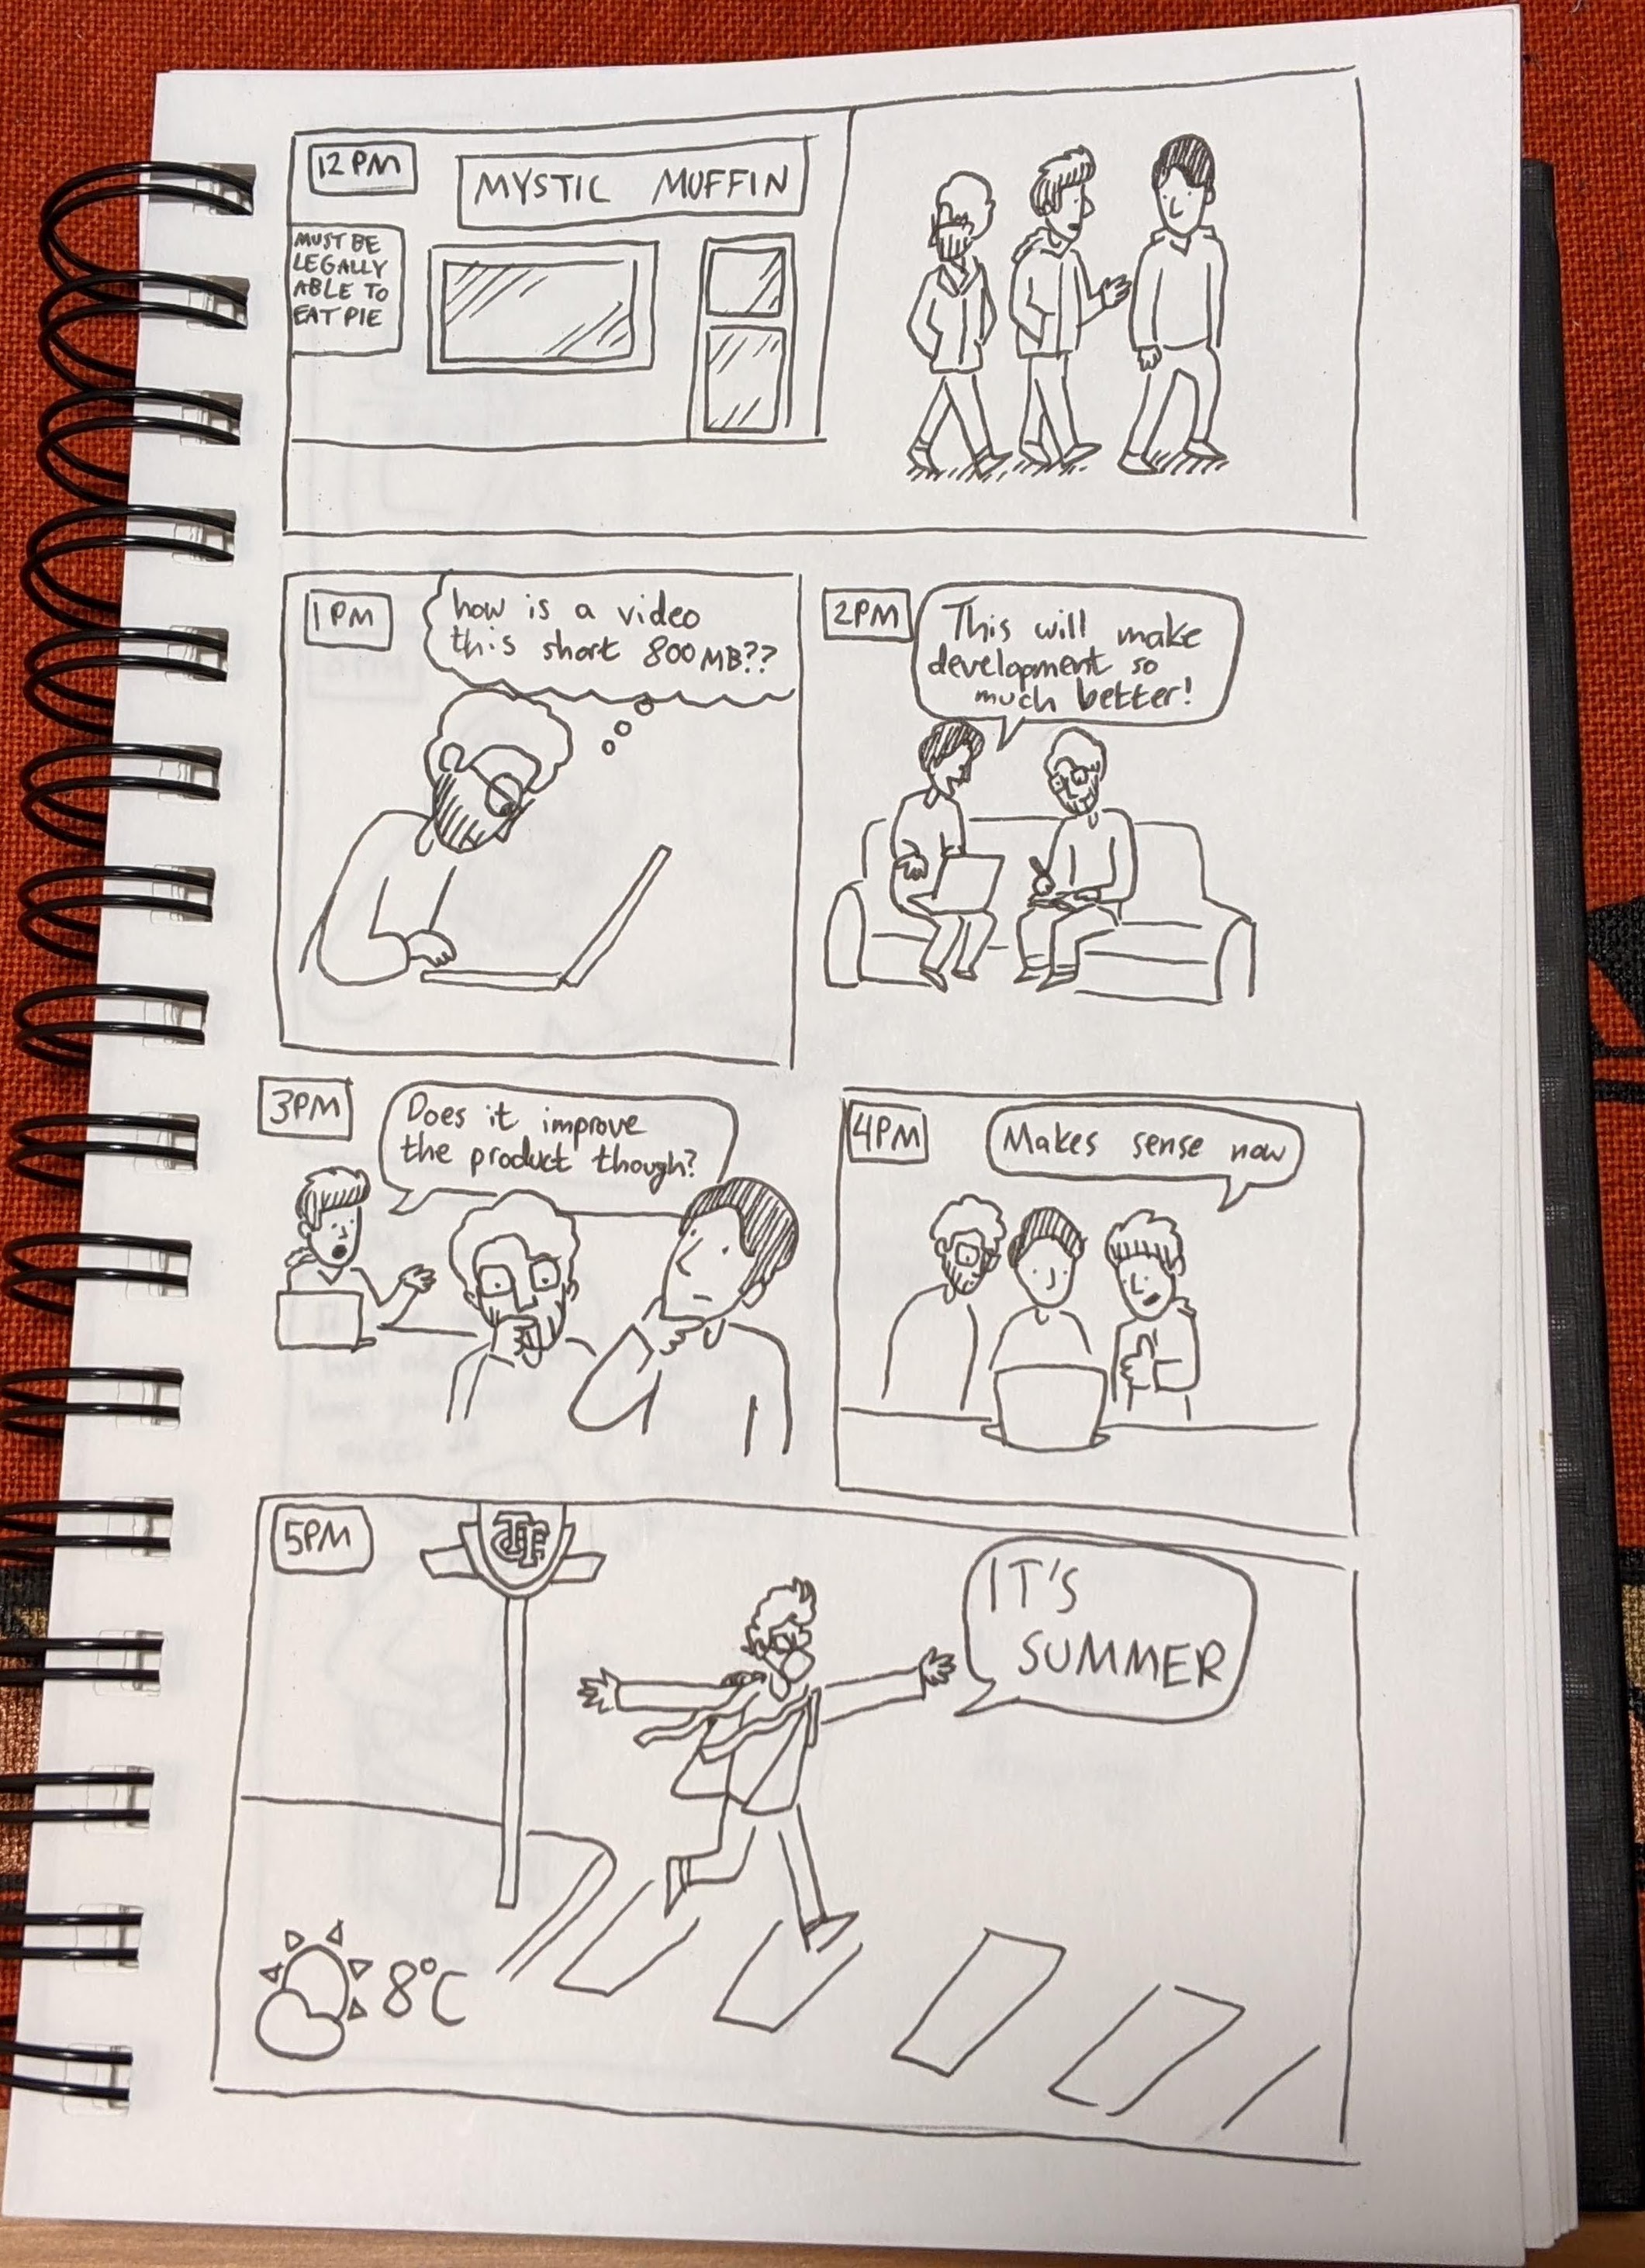 12 PM
MYSTIC MUFFIN
MUST BE
LEGALLY
ABLE TO
EAT PIE
1 PM
how is a video
this short 800MB??
2PM
This will make
development so
much better!
3PM
Does it improve
the product though?
4PM
Makes sense now
5PM
IT'S
SUMMER
8°C